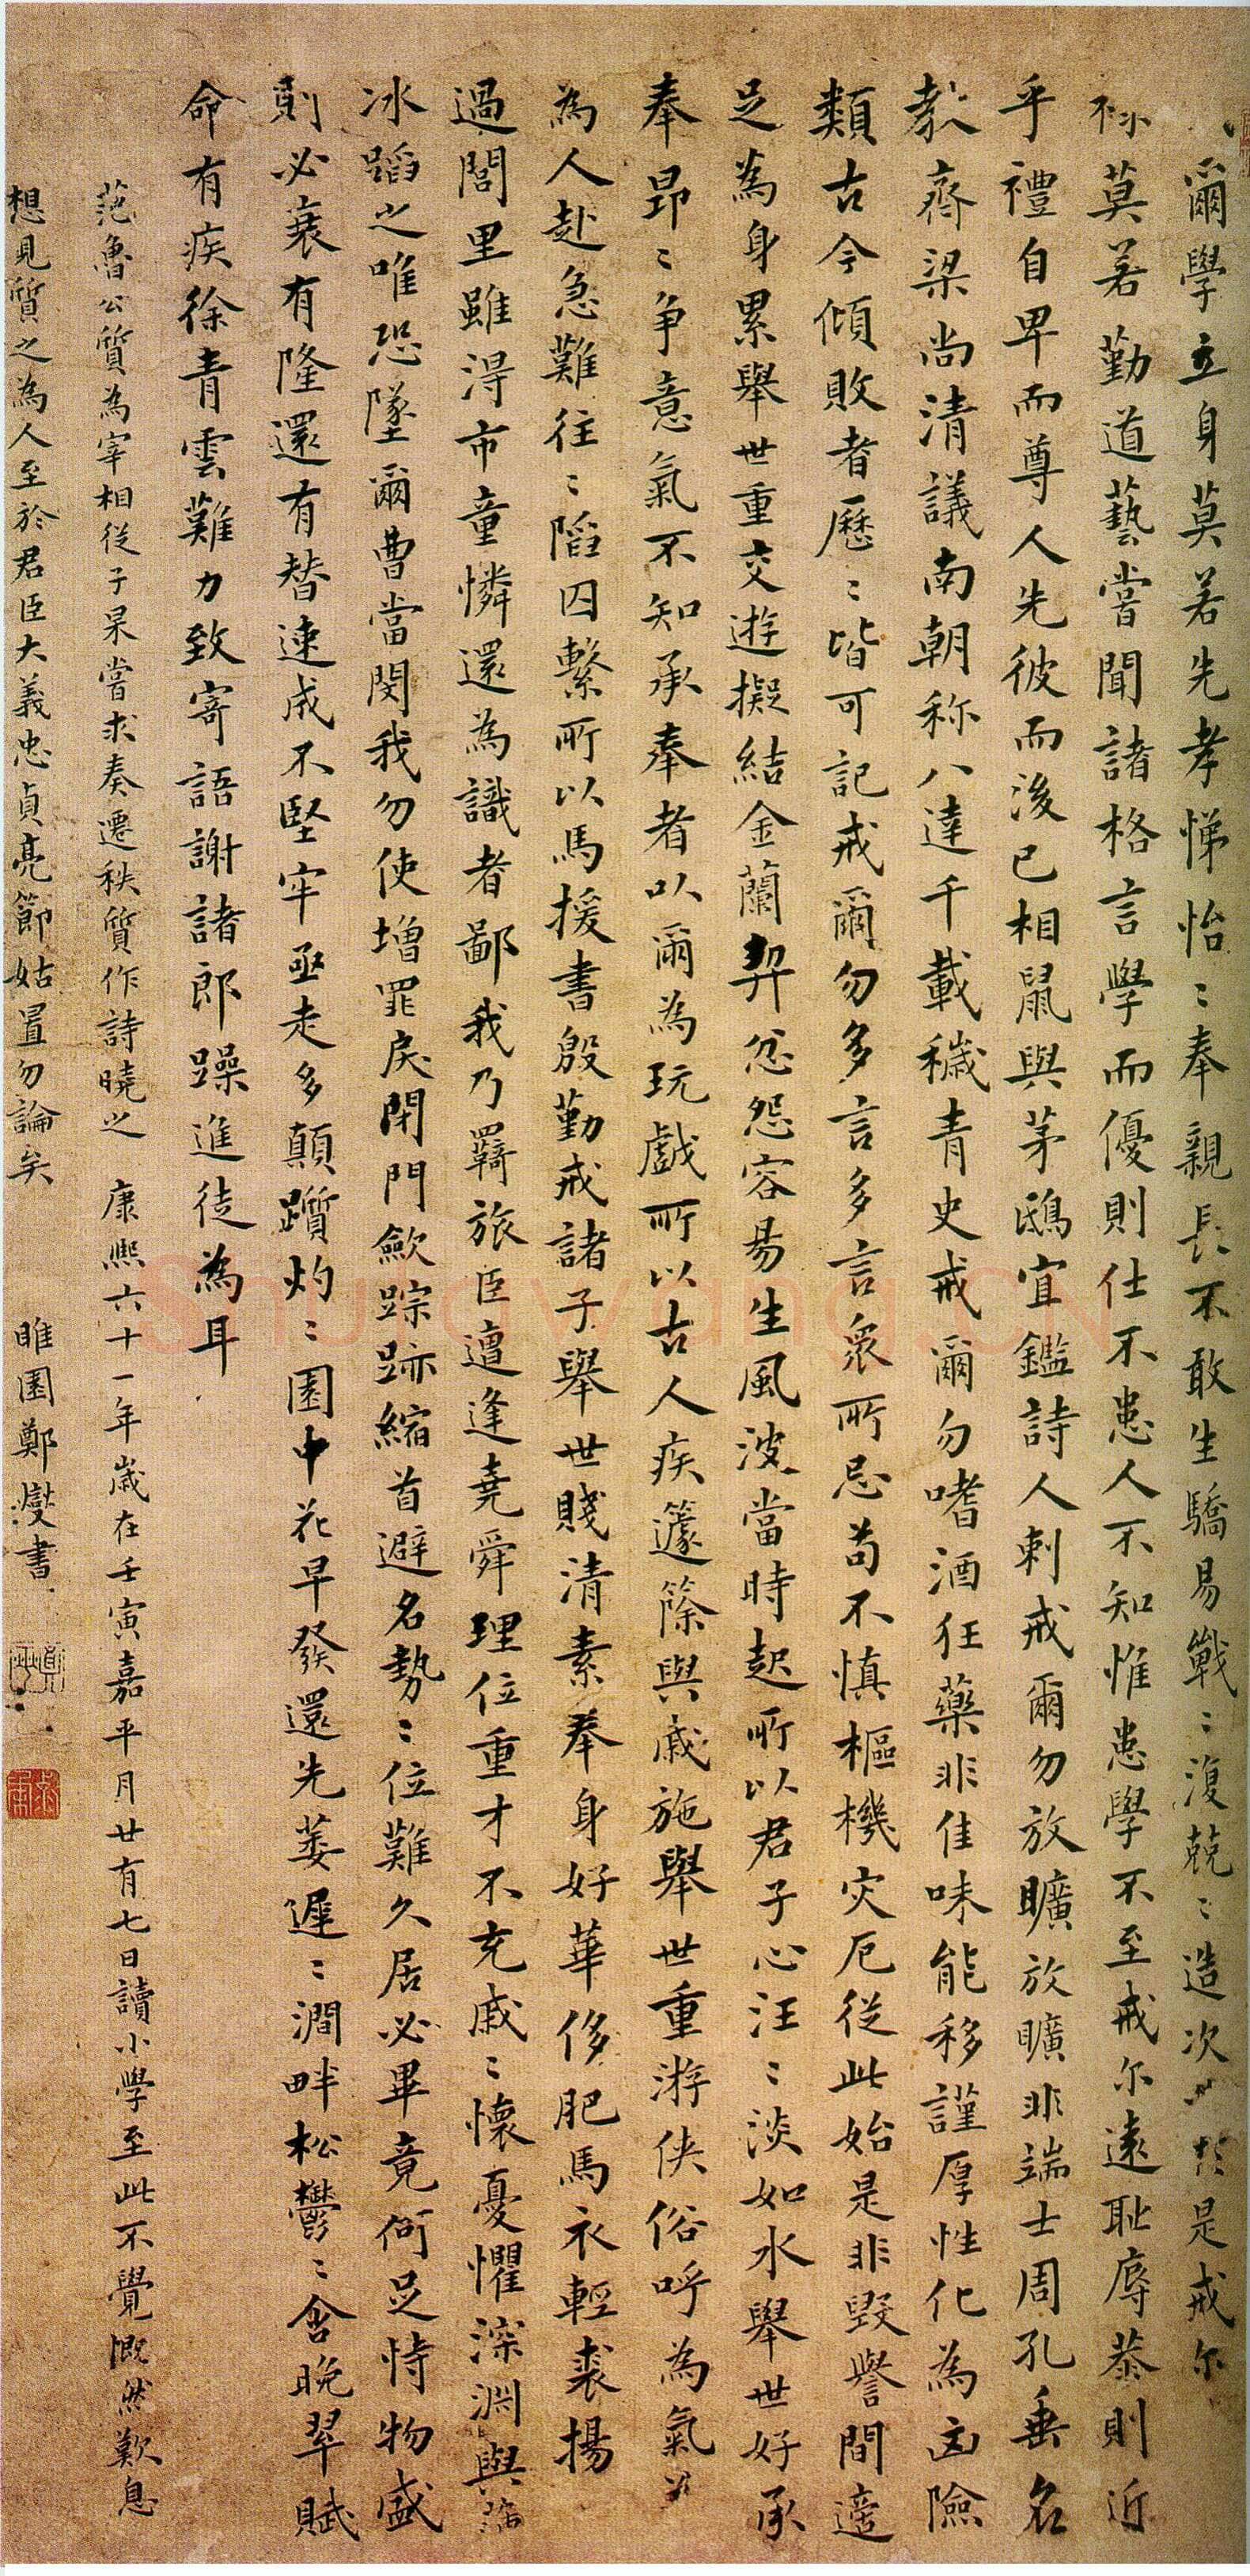 爾學立身莫若先孝悌怡〻奉親長不敢生驕易戰〻復兢〻造次於是戒尔
學干祿莫若勤道藝嘗聞諸格言學而優則仕不患人不知惟患學不至戒尔遠恥辱恭則近
乎禮自卑而尊人先彼而後己相鼠與茅鴟宜鑑詩人刺戒爾勿放曠放曠非端士周孔垂名
教齊梁尚清議南朝称八達千載穢青史戒爾勿嗜酒狂藥非佳味能移謹厚性化為凶險
類古今傾敗者歷〻皆可記戒爾勿多言多言衆所忌苟不慎樞機灾厄從此始是非毀譽間適
足為身累舉世重交遊擬結金蘭契忿怨容易生風波當時起所以君子心汪〻淡如水舉世好承
奉昂〻争意氣不知承奉者以爾為玩戲所以古人疾籧篨與戚施舉世重游俠俗呼為氣
為人赴急難往〻陷囚繫所以馬援書殷勤戒諸子舉世賤清素奉身好華侈肥馬衣輕裘揚
過閭里雖得市童憐還為識者鄙我乃羇旅臣遭逢堯舜理位重才不充戚〻懷憂懼深淵與
冰蹈之唯恐墜爾曹當閔我勿使增罪戾閉門歛踪跡縮首避名勢〻位難久居必畢竟何足恃物盛
則必衰有隆還有替速成不堅牢亟走多顛躓灼〻園中花早發還先萎遲〻澗畔松鬱〻含晚翠賦
命有疾徐青雲難力致寄語謝諸郎躁進徒為耳
范魯公質為宰相從子杲嘗求奏遷秩質作詩曉之 康熙六十一年歲在壬寅嘉平月廿有七日讀小學至此不覺慨然歎息
想見質之為人至於君臣大義忠貞亮節姑置勿論矣 睢園鄭燮書